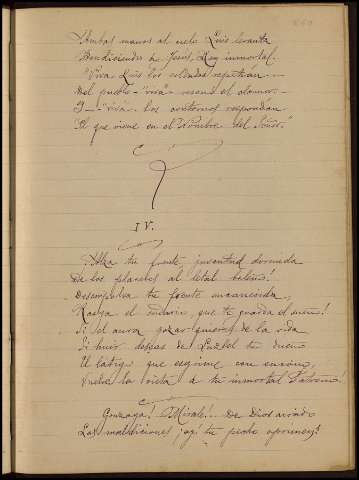 Ambas manos al cielo Luis levanta
Bendiciendo a Jesus, Rey inmortal.
"Viva Luis" los soldados repetian...
Del pueblo - "viva" - resonó el clamor -
Y - "viva" los contornos respondian
"El que viene en el Nombre del Señor."
IV.
¡Alza tu frente, juventud dormida
De los placeres al letal beleño!
Desempolva tu frente encanecida,
Rasga el sudario, que te guarda el sueño!
Si el aura gozar quieres de la vida
Si huir deseas de Luzbel tu dueño
El látigo que esgrime con encono,
Vuelve la vista a tu inmortal Patrono!
Gonzaga! Mirale!.. De Dios airado
Las maldiciones, ay! tu pecho oprimen;